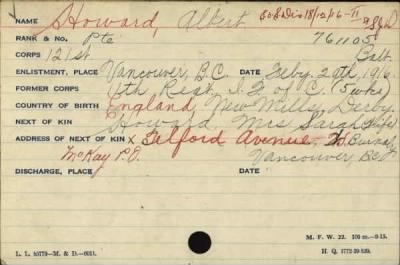 NAME Howard, Albert S.O.S. Dis 18/12/16-II
RANK & No. Pte 761105
CORPS 121st Batt.
ENLISTMENT, PLACE Vancouver, B.C. DATE Feby. 29th, 1916.
FORMER CORPS Regt. (5 wks)
COUNTRY OF BIRTH England, New Mills, Derby.
NEXT OF KIN Howard, Mrs Sarah (Wife)
ADDRESS OF NEXT OF KIN x Telford Avenue, Burnaby
McKay P.O. Vancouver B.C.
DISCHARGE, PLACE DATE
M. F. W. 22.
L. L. H. Q. 1772-39-839.